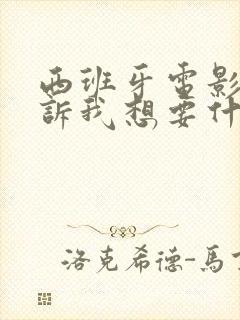 西班牙電影
訴我想要什
洛克希德-馬